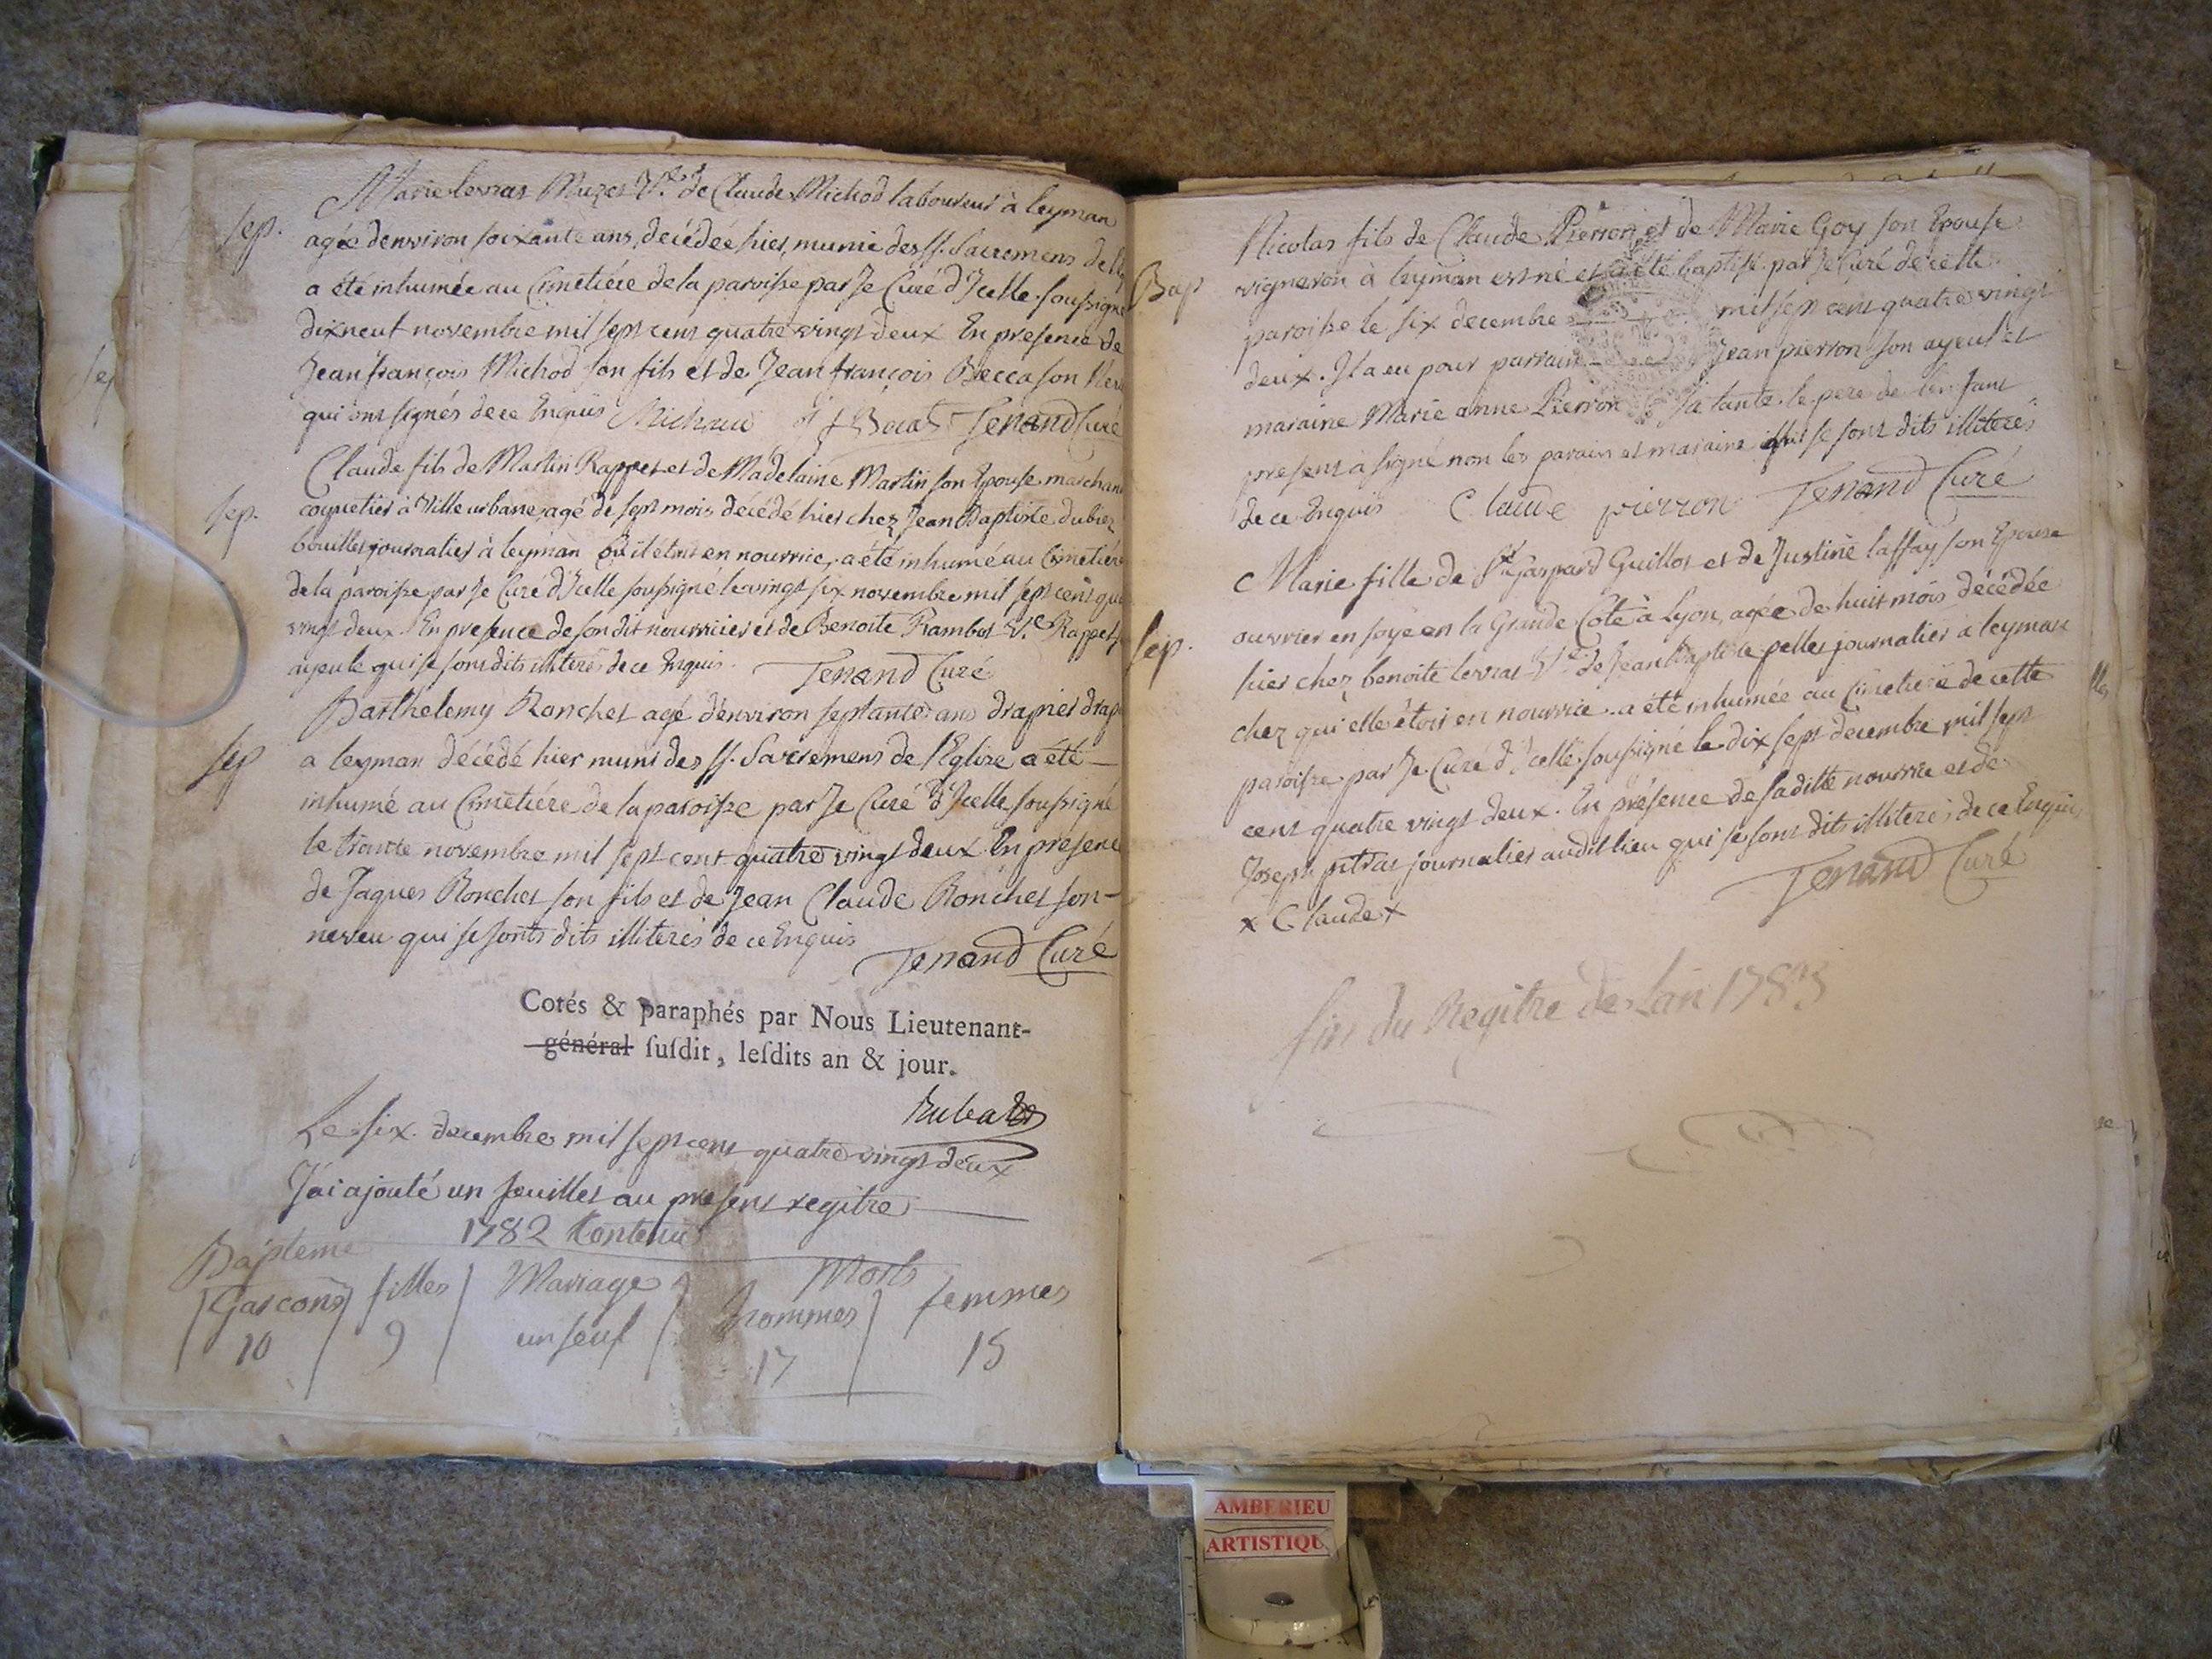 Marie levras Muzet V.e de Claude Michod laboureur à leyman
Sep.
agée denviron soixante ans, décédée hier, munie des SS. Sacremens de
a été inhumée au Cimetiére de la paroisse par Je Curé d'Icelle soussigné
dixneuf novembre mil sept cent quatre vingt deux En presence de
Jean françois Michod son fils et de Jean françois Becca son
qui ont signés de ce Enquis Michaud Tenand Curé
Claude fils de Martin Rappet et de Madelaine Martin son Epouse marchand
Sep.
coquetier à Ville urbane, agé de sept mois décédé hier chez Jean Baptiste dubiez
bouiller journalier à leyman où il étoit en nourrice, a été inhumé au Cimetiére
de la paroisse par Je Curé d'Icelle soussigné le vingt six novembre mil sept cent
vingt deux. En presence de son dit nourricier et de Benoite Rambot V.e Rappet
ayeule qui se sont dits illiterés de ce Enquis. Tenand Curé
Barthelemy Ronchet agé d'environ septante ans drapier
Sep
a leyman décédé hier muni des SS. Sacremens de l'Eglise a été
inhumé au Cimetiére de la paroisse par Je Curé d'Icelle soussigné
le trante novembre mil sept cent quatre vingt deux En presence
de Jaques Ronchet son fils et de Jean Claude Ronchet son
neveu qui se sonts dits illiterés de ce Enquis
Tenand Curé
Cotés & paraphés par Nous Lieutenant-
général susdit, lesdits an & jour.
Le six decembre mil sept cent quatre vingt deux
J'ai ajouté un feuillet au present regitre
1782 Contenu
Bapteme Mariage Morts
Garcons filles hommes femmes
10 9 un seul 17 15
Nicolas fils de Claude Pierron et de Marie Goy son Epouse
Bap
vigneron à leyman est né et a été baptisé par Je Curé de cette
paroisse le six decembre mil sept cent quatre vingt
deux. Il a eu pour parrain Jean pierron son ayeul et
maraine Marie anne Pierron sa tante. le pere de l'enfant
present a signé non les parain et maraine qui se sont dits illiterés
de ce Enquis Claude pierron Tenand Curé
Marie fille de Sr Gaspard Guillot et de Justine laffay son Epouse
ouvrier en soye en la Grande Cote à Lyon, agée de huit mois décédée
Sep.
hier chez benoite levrat V.e de Jean Baptiste pellet journalier a leyman
chez qui elle étoit en nourrice. a été inhumée au Cimetiere de cette
paroisse par Je Curé d'Icelle soussigné le dix sept decembre mil sept
cent quatre vingt deux. En présence de saditte nourrice et de
Joseph journalier audit lieu qui se sont dits illiterés de ce Enquis
x Claude x Tenand Curé
fin du Regitre de Lan 1783
AMBERIEU
ARTISTIQU